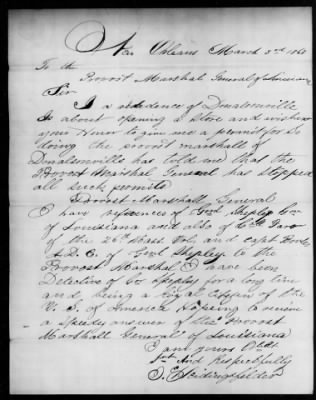 New Orleans March 3rd 186
To the
Provost Marshal General of Louisiana
Sir
I a residence of Donalsonville
is about opening a store and wishes
your Honor to give me a permit for so
doing the provost marshall of
Donalsonville has told me that the
Provost Marshal General has stopped
all such permits
Provost Marshall General
I have refrences of Genl Shepley Gov
of Louisiana and also of
of the 26 Mass Vol, and capt
A.D.C. of Genl Shepley to the
Provost Marshal I have been
Detective of Gov Shepley for a long time
and being a Loyal Citizen of the
U.S. of America Hopeing to receive
a speedy answer of the Provost
Marshall General of Louisiana
I am yours Obt
Svt And Respectfully